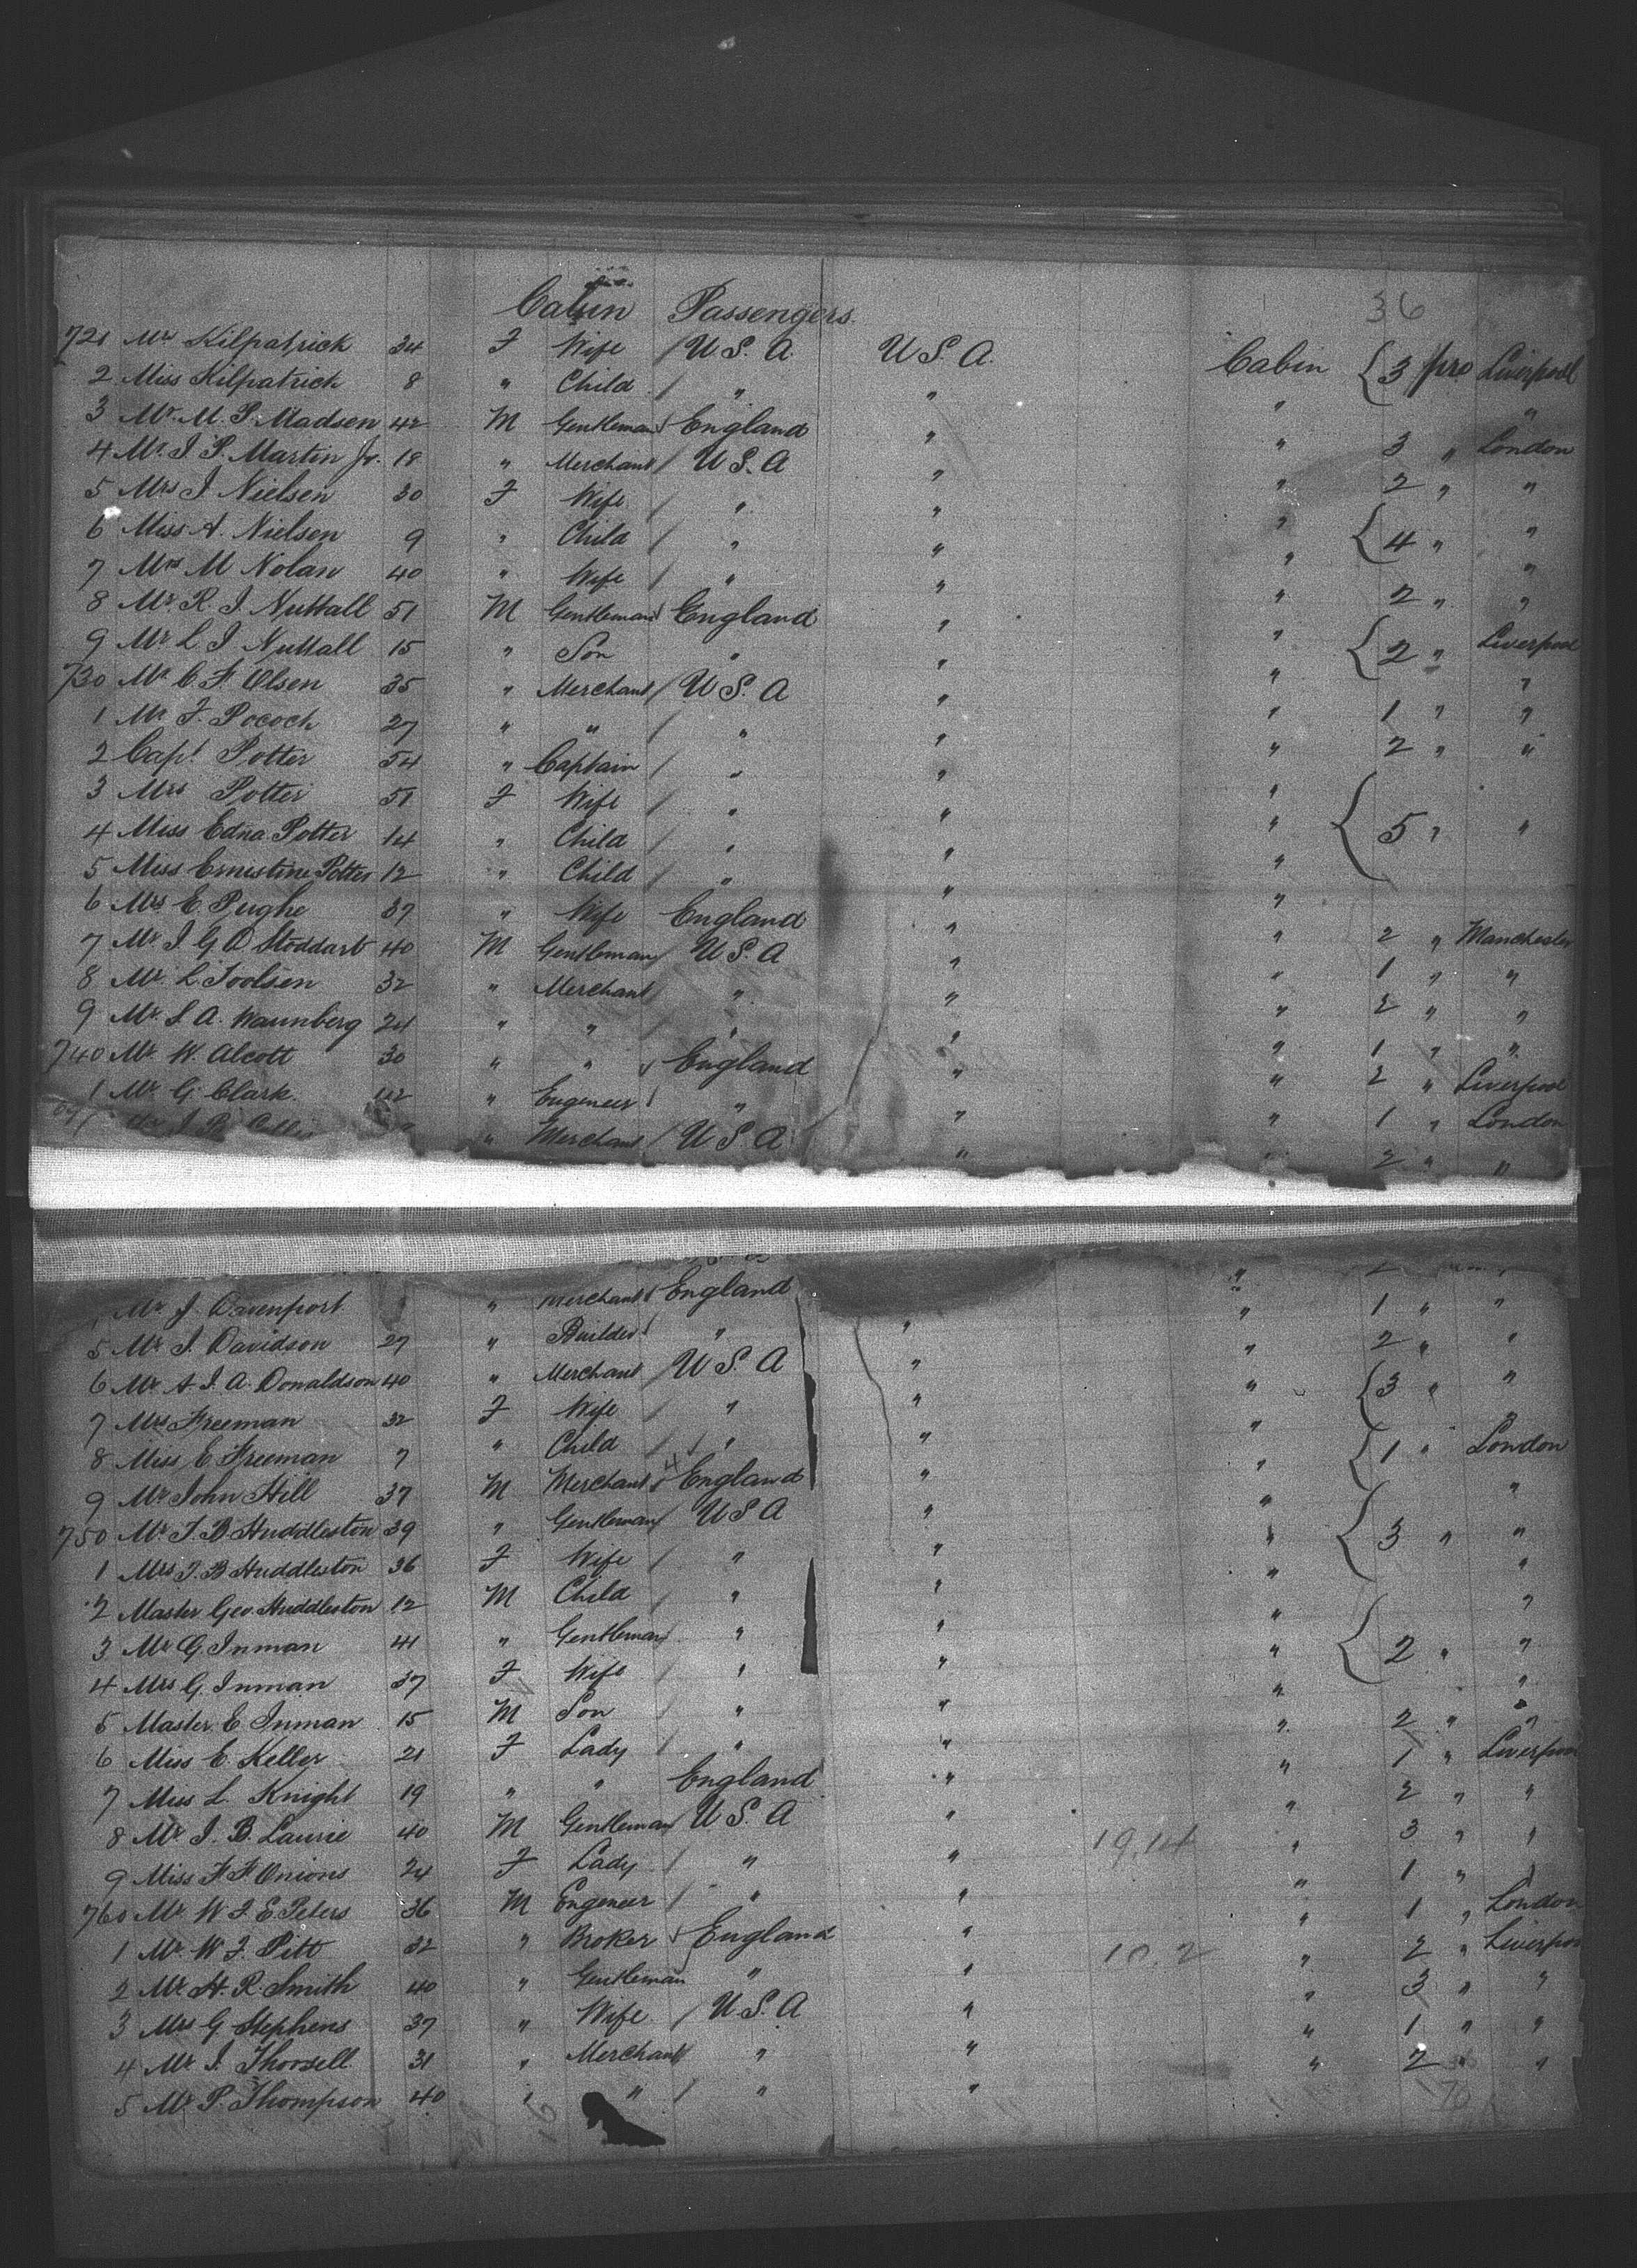 Cabin Passengers.
36
721 Mrs Kilpatrick 34 F Wife / U.S.A. U.S.A. Cabin { 3 pro Liverpool
2 Miss Kilpatrick 8 " Child / " " " "
3 Mr. M. P. Madsen 42 M Gentleman England " " 3 " London
4 Mr. J. P. Martin Jr. 18 " Merchant / U.S.A " " 2 " "
5 Mrs J Nielsen 30 F Wife / " " " { 4 " "
6 Miss A. Nielsen 9 " Child / " " " "
7 Mrs M Nolan 40 " Wife / " " " 2 " "
8 Mr. R. J. Nuttall 51 M Gentleman England " " { 2 " Liverpool
9 Mr L J Nuttall 15 " Son " " " "
730 Mr C. F. Olsen 35 " Merchant / U.S.A " " 1 " "
1 Mr F. Pococh 27 " " / " " " 2 " "
2 Capt Potter 54 " Captain / " " " { 5 " "
3 Mrs Potter 51 F Wife / " " "
4 Miss Edna Potter 14 " Child / " " "
5 Miss Ernestine Potter 12 " Child / " " "
6 Mrs E. Pughe 37 " Wife England " " 2 " Manchester
7 Mr. J. G. A Stoddart 40 M Gentleman / U.S.A " " 1 " "
8 Mr. L. Toolsen 32 " Merchant / " " " 2 " "
9 Mr. S. A. Waunberg 24 " " / " " " 1 " "
740 Mr. W. Alcott 30 " " England " " 2 " Liverpool
1 Mr. G. Clark 42 " Engeneer " " " 1 " London
" Merchant / U.S.A " 2 " "
Mr J. Davenport " Merchant England " 1 " "
5 Mr. J. Davidson 27 " Builder " " " 2 " "
6 Mr. A J. A. Donaldson 40 " Merchant / U.S.A " " { 3 " "
7 Mrs Freeman 32 F Wife / " " " "
8 Miss E Freeman 7 " Child / " " " { 1 " London
9 Mr John Hill 37 M Merchant England " " "
750 Mr. J. B. Huddleston 39 " Gentleman / U.S.A " " { 3 " "
1 Mrs J. B Huddleston 36 F Wife / " " " "
2 Master Geo. Huddleston 12 M Child / " " " "
3 Mr G. Inman 41 " Gentleman " " " { 2 " "
4 Mrs G. Inman 37 F Wife / " " " "
5 Master E. Inman 15 M Son / " " " 2 " "
6 Miss E. Keller 21 F Lady / " " " 1 " Liverpool
7 Miss L. Knight 19 " " England " " 2 " "
8 Mr. J. B. Laurie 40 M Gentleman / U.S.A " " 3 " "
9 Miss F. F. Onions 24 F Lady / " " " 1 " "
760 Mr. W. J. E. Peters 36 M Engeneer / " " " 1 " London
1 Mr. W. J. Pitt 32 " Broker England " " 2 " Liverpool
2 Mr. H. R. Smith 40 " Gentleman " " " 3 " "
3 Mrs G Stephens 37 " Wife / U.S.A " " 1 " "
4 Mr. J. Thorsell 31 " Merchant / " " " 2 " "
5 Mr. P. Thompson 40 " " / " "